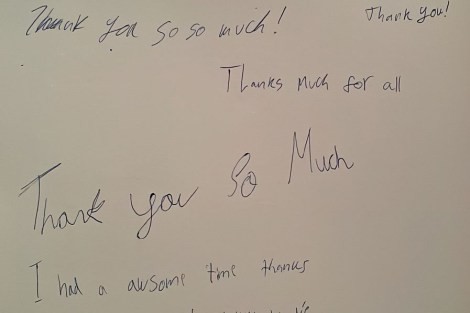 Thank you so so much!
Thank you!
Thanks Much for all
Thank you So Much
I had a awsome time thanks